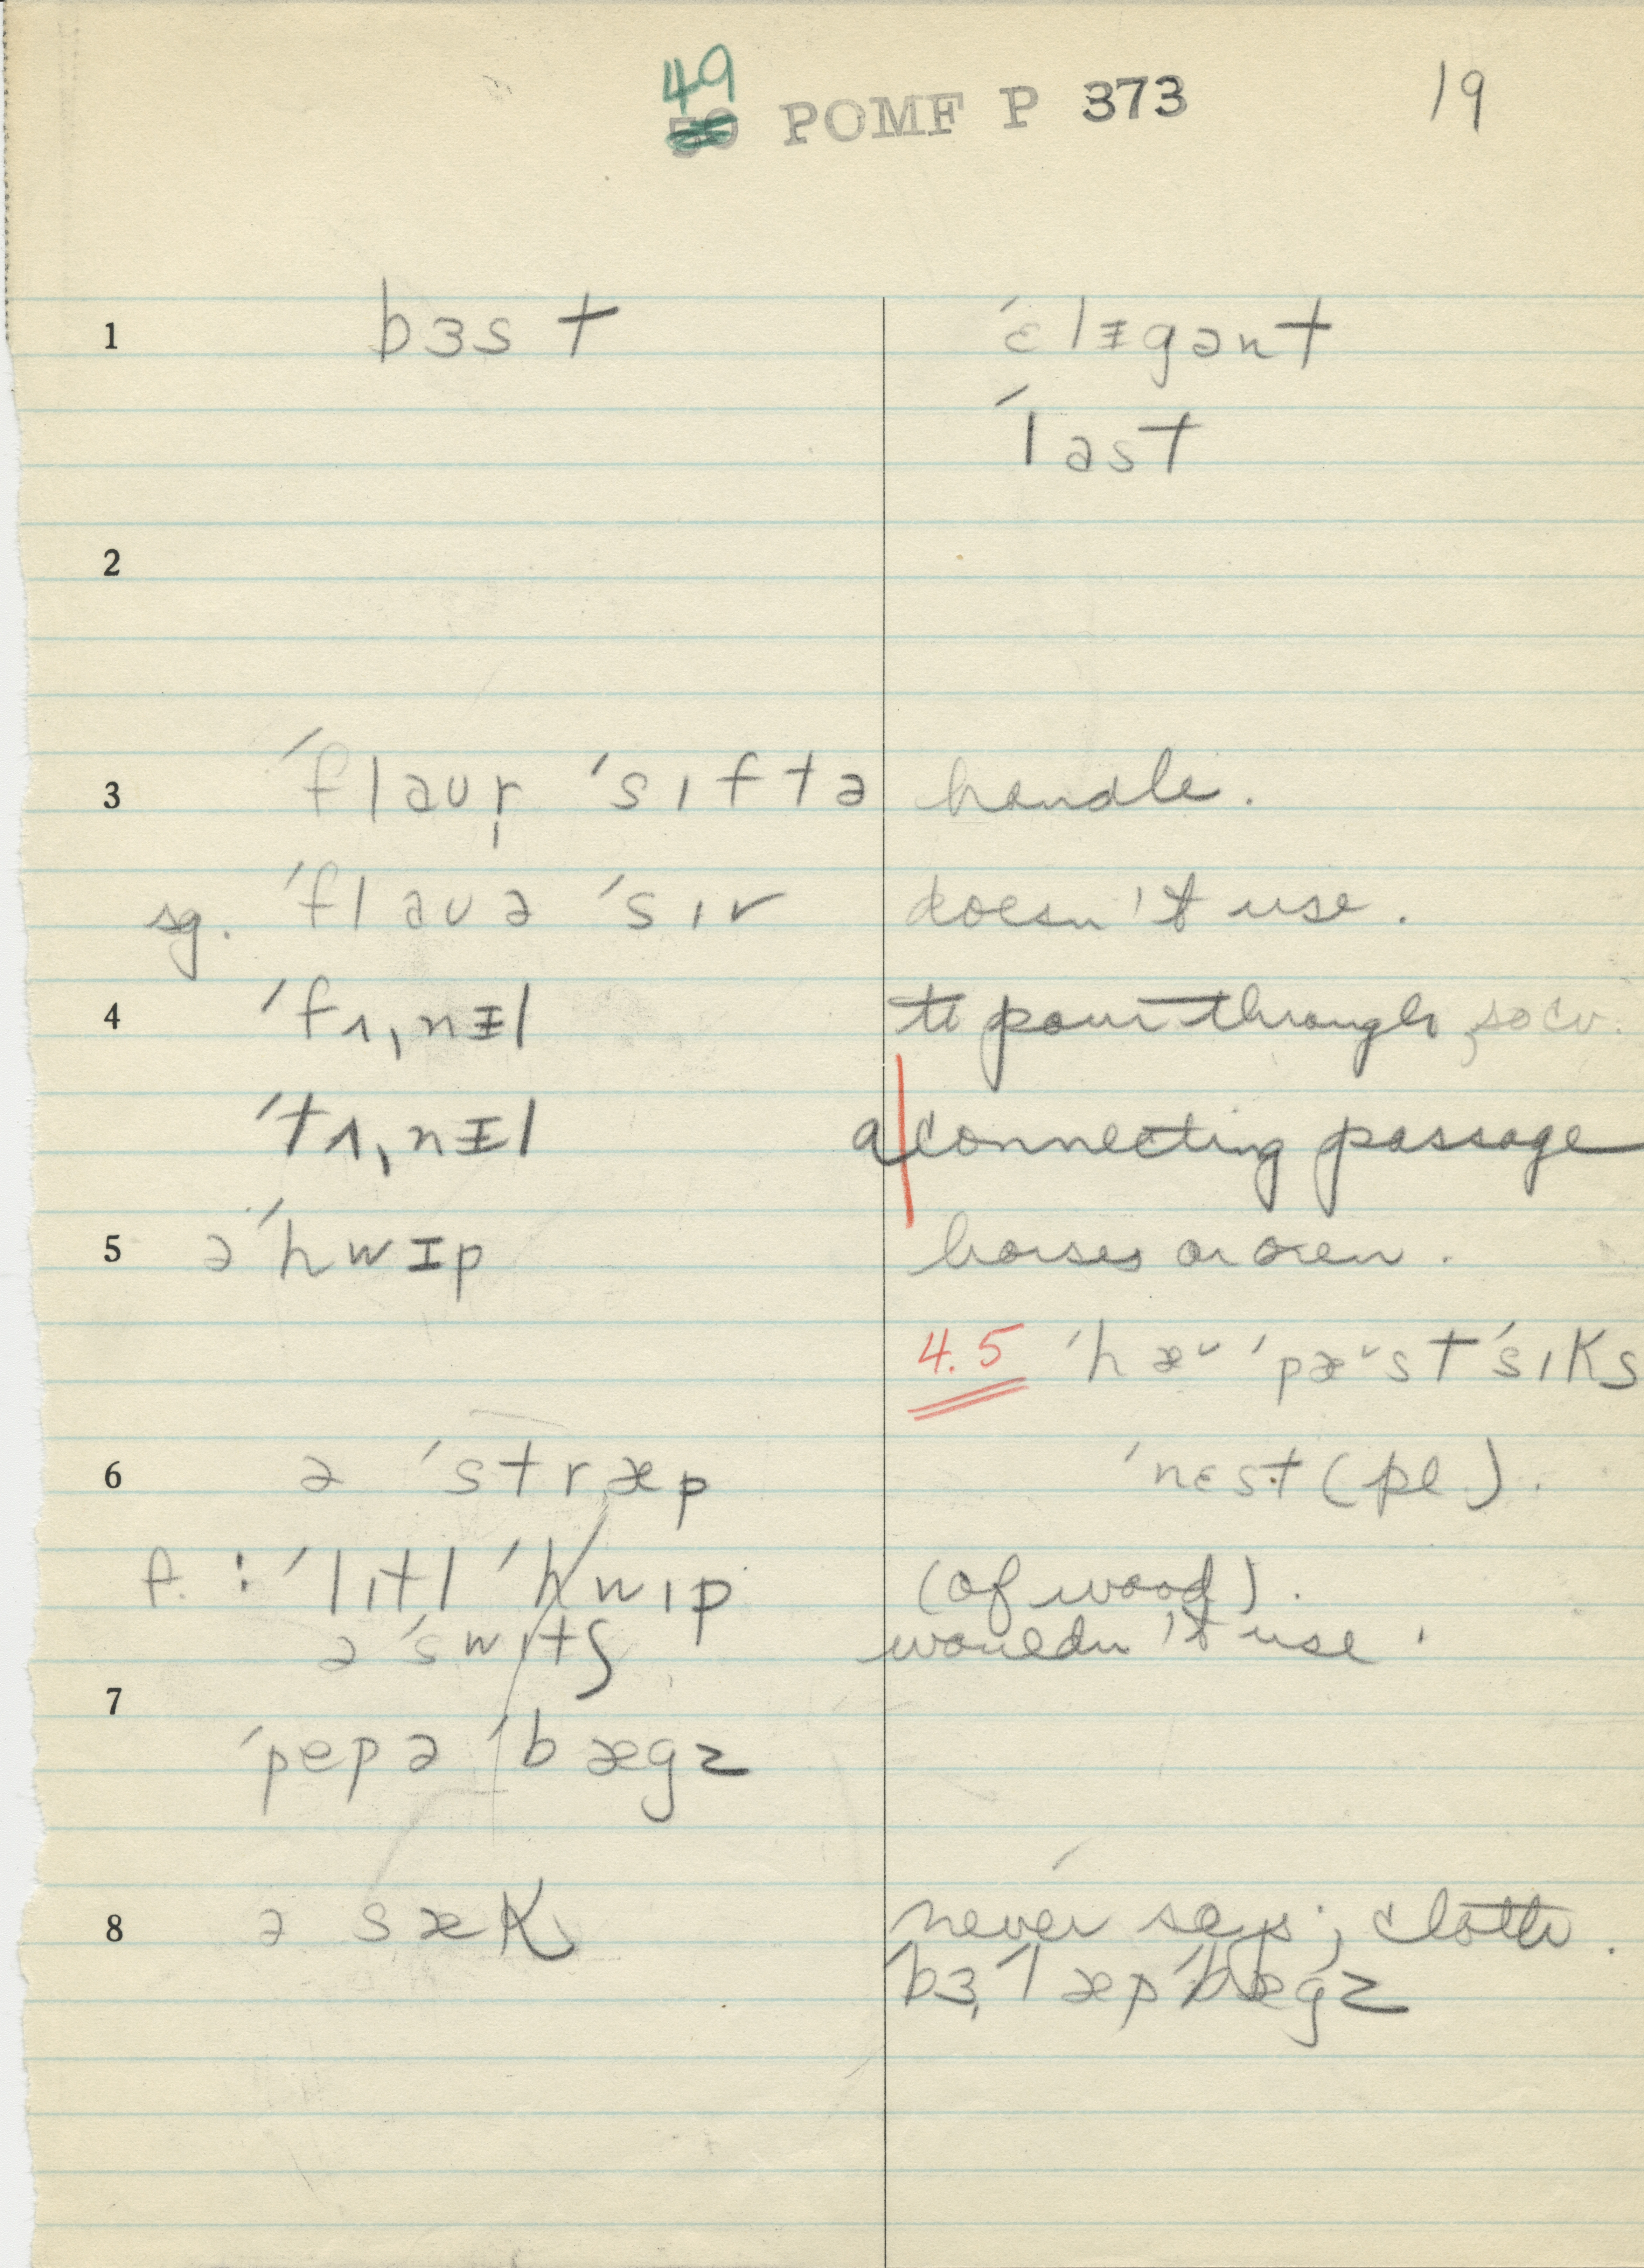 49
POMF P 373 19
1 bɜst ˈɛlᵻgənt
ˈlast
2
3 ˈflaʊr̩ ˈsɪftə handle.
sg. ˈflaʊə ˈsɪv doesn't use.
4 ˈfʌ̩nᵻl to pour through,
ˈtʌ̩nᵻl a connecting passage
5 əˈhwɪp horses or oxen.
4.5 ˈhæᵕ ˈpæᵕstˈsɪks
6 ə ˈstræp ˈnɛst (pl).
f. : ˈlɪtl ˈhwɪp (of wood).
ə ˈswɪtʃ wouldn't use.
7
ˈpepə ˈbægz
8 ə sæk never says; cloth.
ˈbɜ̩ˈlæpˈbægz